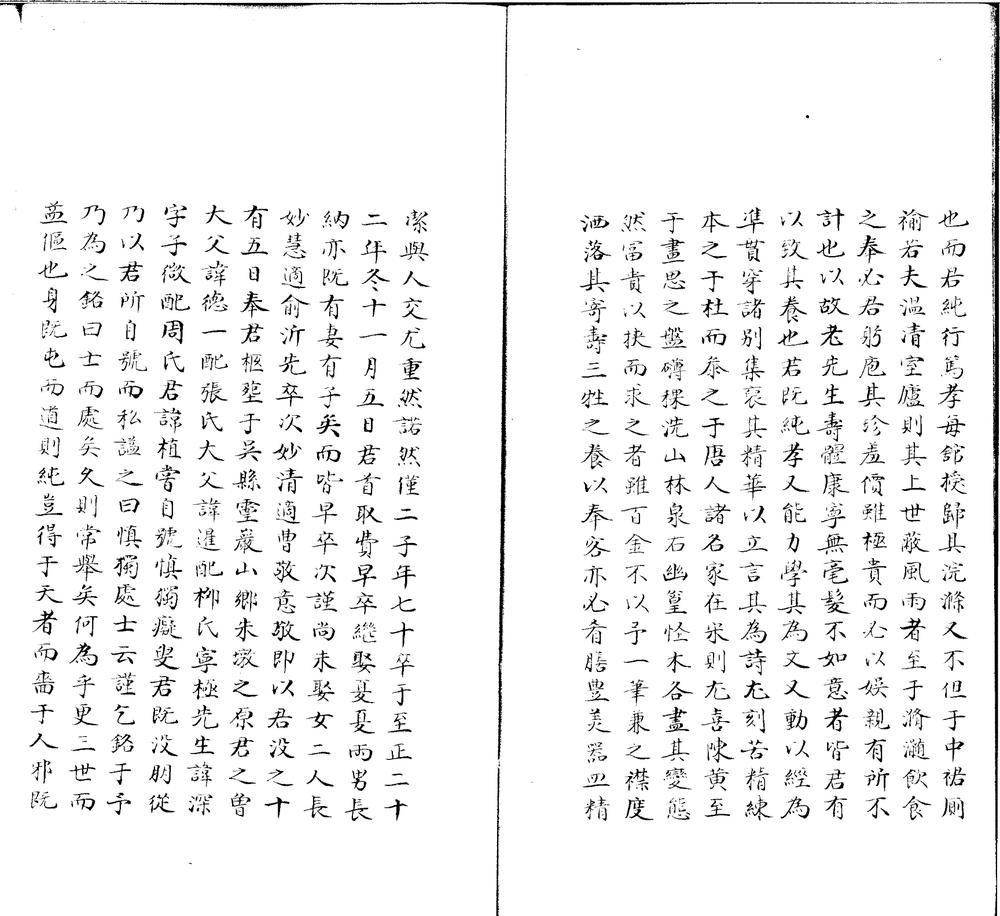 也而君純行篤孝每館授歸其浣滌又不但于中裙厠
褕若夫溫清室廬則其上世蔽風雨者至于滫瀡飲食
之奉必君躬庖其珍羞價雖極貴而必以娛親有所不
計也以故老先生壽體康寧無毫髮不如意者皆君有
以致其養也君既純孝又能力學其為文又動以經為
準貫穿諸別集裒其精華以立言其為詩尤刻苦精練
本之于杜而叅之于唐人諸名家在宋則尤喜陳黃至
于畫思之盤礴祼洗山林泉石幽篁怪木各盡其變態
然富貴以挾而求之者雖百金不以予一筆兼之襟度
洒落其寄壽三牲之養以奉客亦必肴膳豐美器皿精
潔與人交尤重然諾然僅二子年七十卒于至正二十
二年冬十一月五日君首取費早卒繼娶夏夏兩男長
納亦既有妻有子矣而皆早卒次謹尚未娶女二人長
妙慧適俞沂先卒次妙清適曹敬意敬即以君没之十
有五日奉君柩塟于吳縣靈巖山鄉朱墩之原君之曾
大父諱德一配張氏大父諱暹配柳氏寧極先生諱深
字子微配周氏君諱植嘗自號慎獨癡叟君既没朋從
乃以君所自號而私謚之曰慎獨處士云謹乞銘于予
乃為之銘曰士而處矣久則常舉矣何為乎更三世而
益傴也身既屯而道則純豈得于天者而嗇于人邪阮